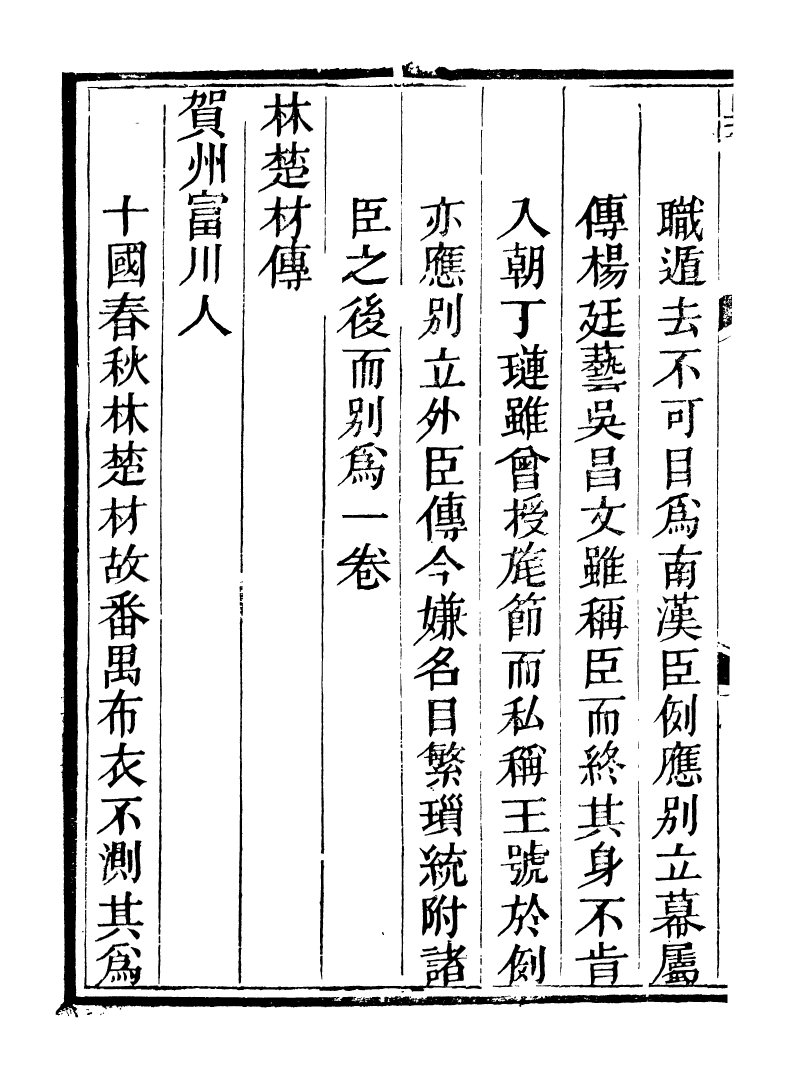 職遁去不可目爲南漢臣例應別立幕屬
傳楊廷藝吳昌文雖稱臣而終其身不肯
入朝丁璉雖曾授旄節而私稱王號於例
亦應別立外臣傳今嫌名目繁瑣統附諸
臣之後而別爲一卷
林楚材傳
賀州富川人
十國春秋林楚材故番禺布衣不測其爲